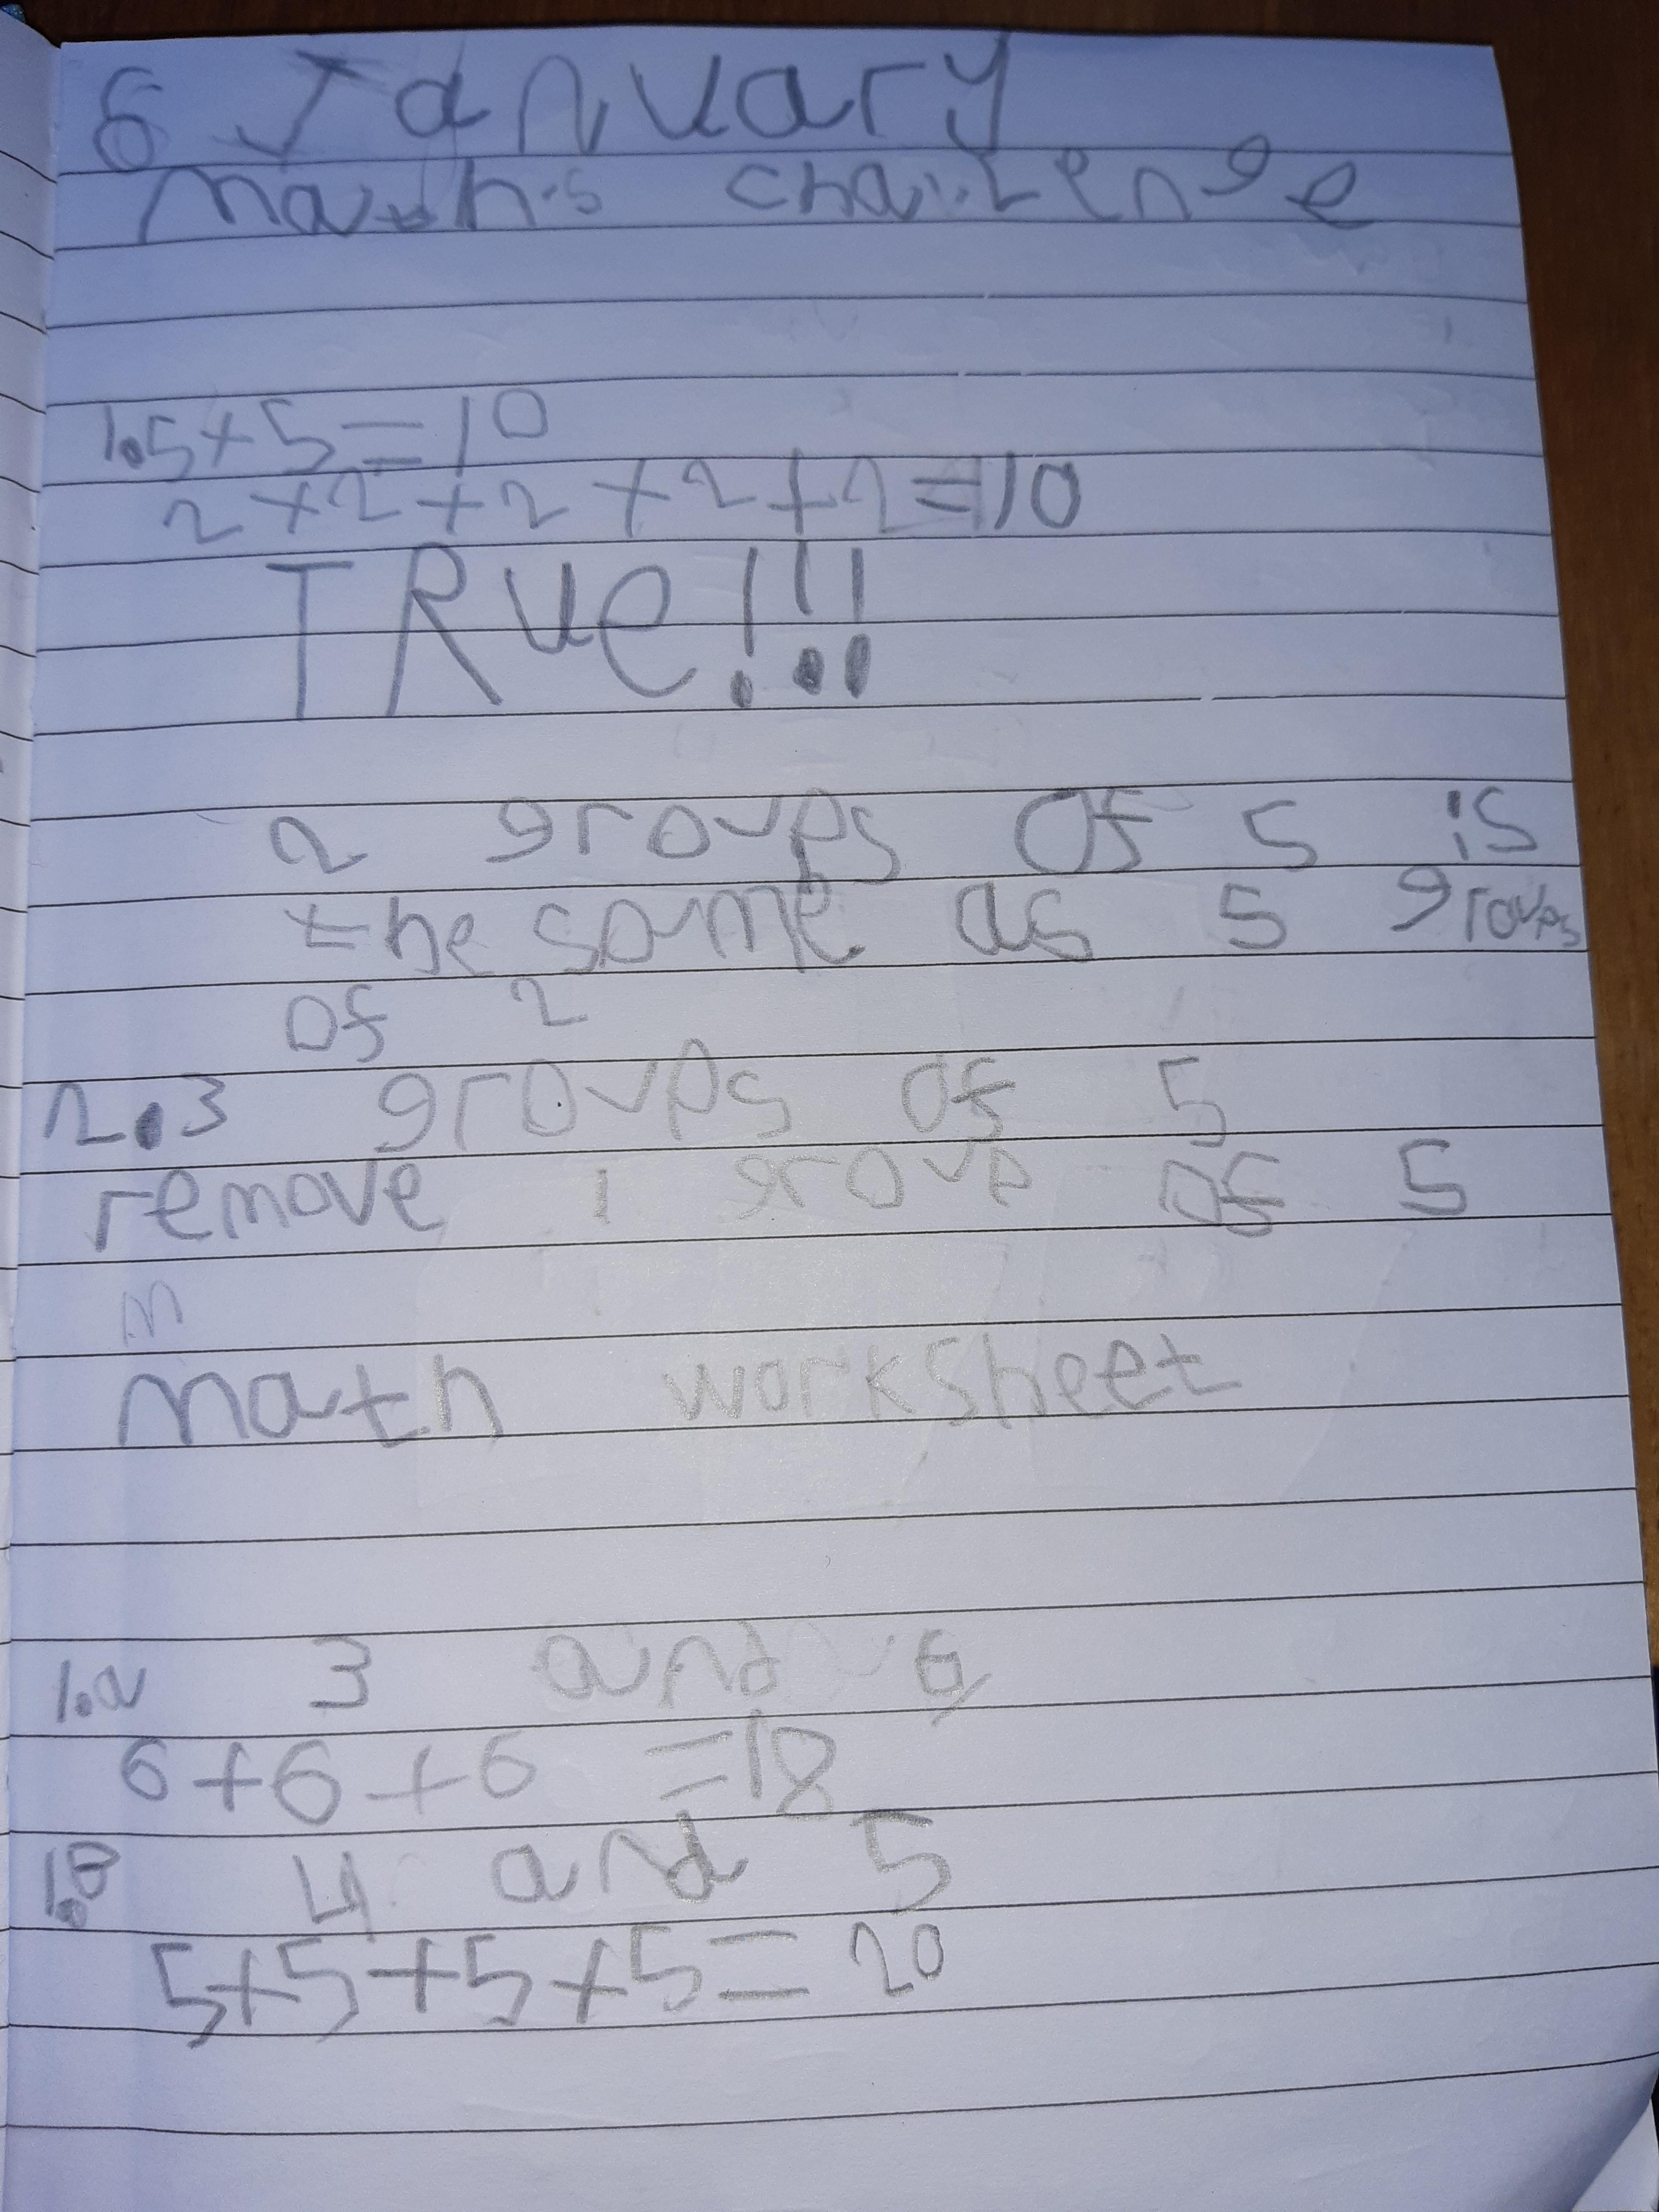 6 January
maths challenge
1. 5+5=10
2+2+2+2+2=10
TRue!!!
2 groups of 5 is
the same as 5 groups
of 2
2. 3 groups of 5
remove 1 group of 5
m
math worksheet
1.a 3 and 6
6+6+6 =18
1.B 4 and 5
5+5+5+5= 20